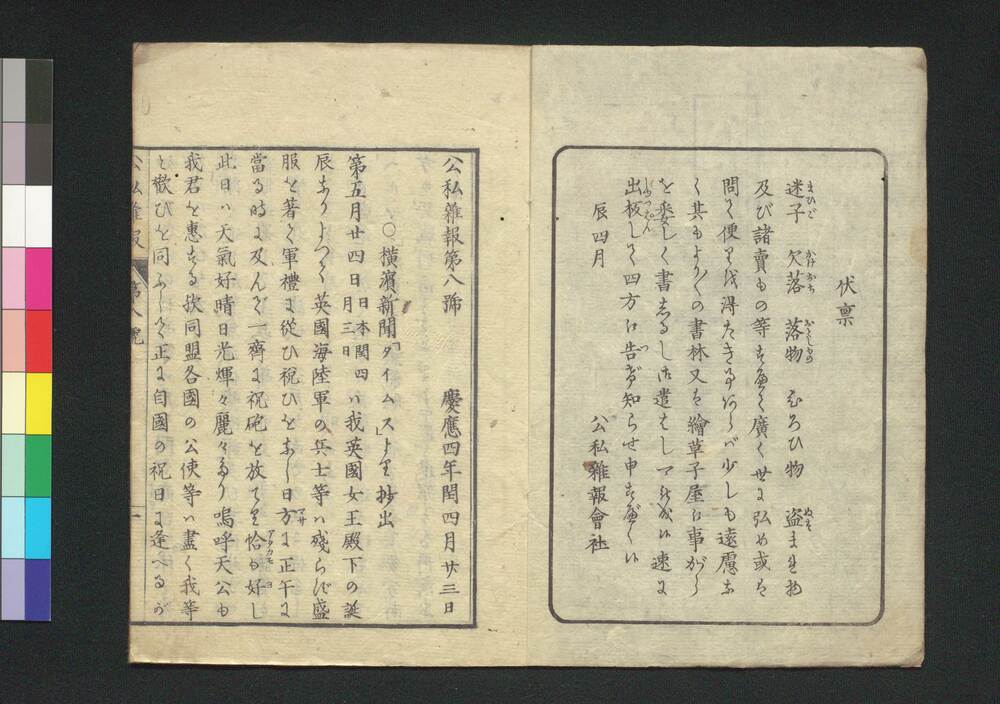 伏禀
迷子 欠落 落物 ひろひ物 盗まれ物
及び諸賣もの等すべて廣く世に弘め或は
問て便りを得たき事あらバ少しも遠慮な
く其もより〳〵の書林又は繪草子屋に事がら
を委しく書しるし御遣はし下され候ハヾ速に
出板して四方に告げ知らせ申すべく候
辰四月
公私雜報會社
公私雜報第八號 慶應四年閏四月廿三日
○橫濱新聞「タイムス」より抄出
第五月廿四日日本閏四月三日ハ我英國女王殿下の誕
辰なりよつて英國海陸軍の兵士等ハ殘らず盛
服を著て軍禮に從ひ祝ひをなし日方に正午に
當る時に及んで一齊に祝砲を放てり恰も好し
此日ハ天氣好晴日光輝々麗々たり嗚呼天公も
我君を惠する歟同盟各國の公使等ハ盡く我等
と歡びを同ふして正に自國の祝日に逢へるが
公私雜報 第八號 一